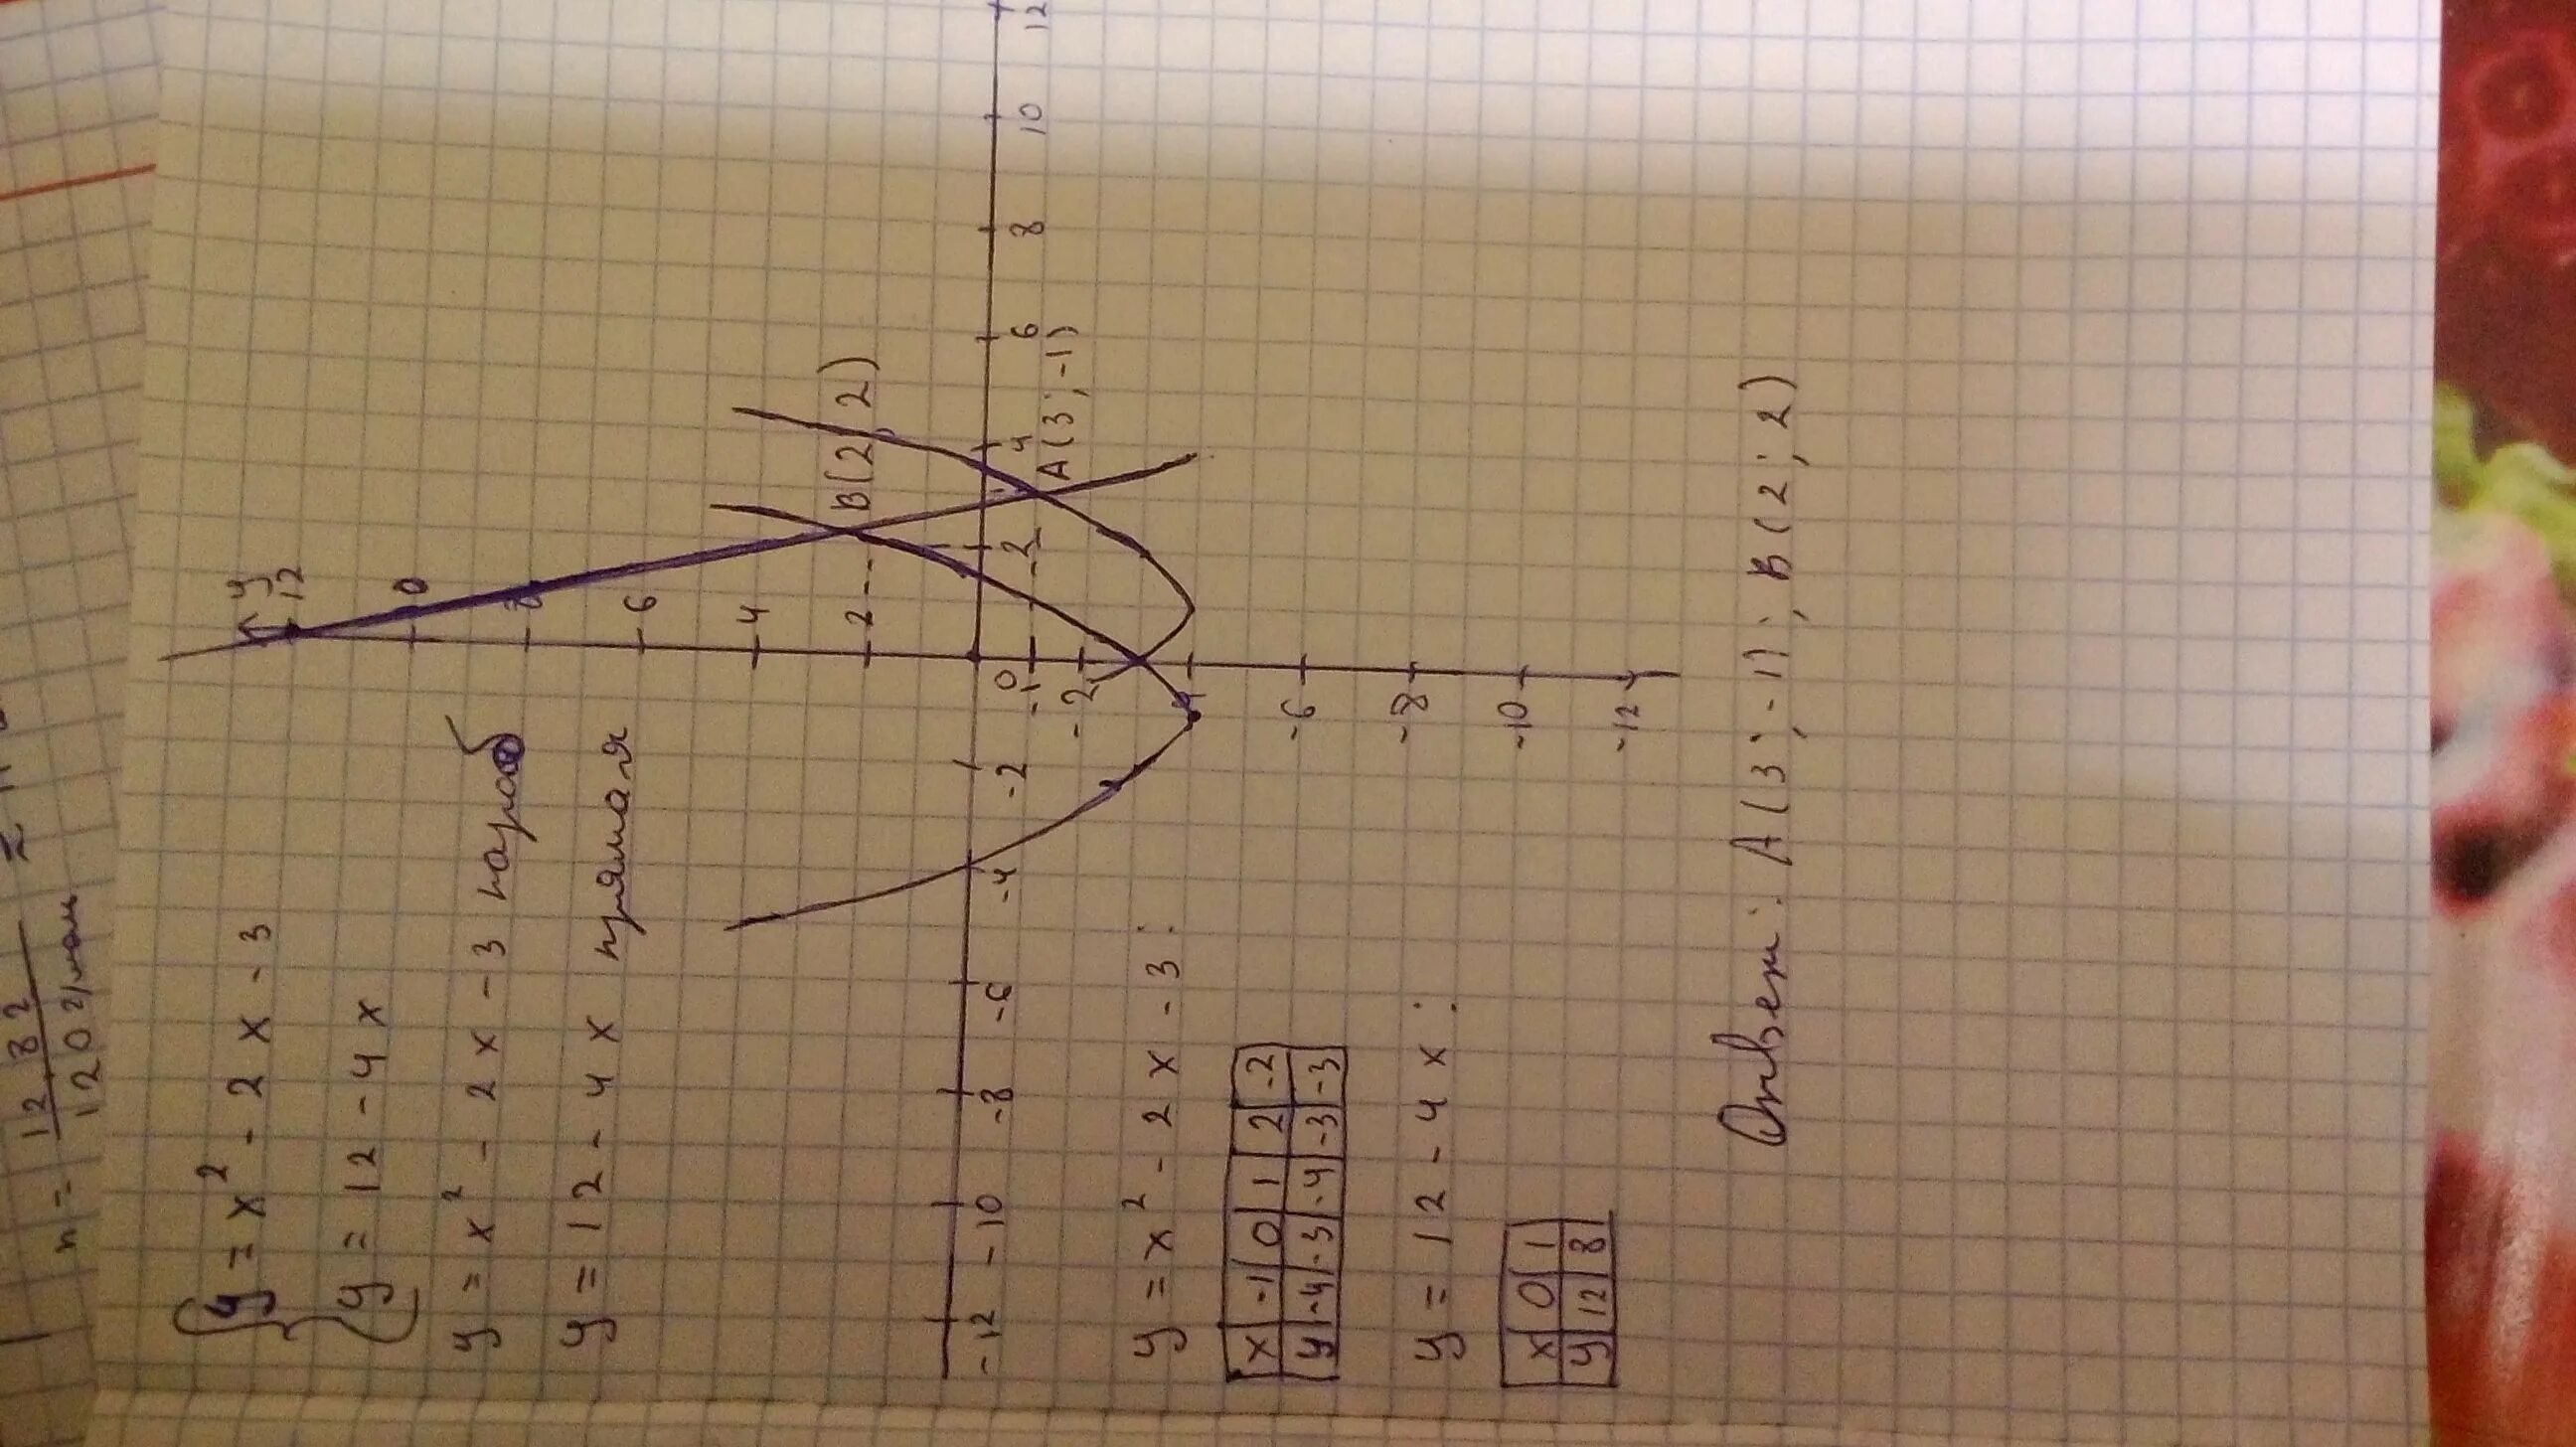 n = 12,8 г
120 г/моль
y = x² - 2x - 3
y = 12 - 4x
y = x² - 2x - 3 параб
y = 12 - 4x прямая
y
12
6
4
2
B(2; 2)
-12 -10 -8 -6 -4 -2 0 2 4 6 8 10 12
-1
A(3; -1)
-2
-4
-6
-8
-10
-12
y = x² - 2x - 3:
x | -1 | 0 | 1 | 2 | -2
y | -4 | -3 | -4 | -3 | -3
y = 12 - 4x:
x | 0 | 1
y | 12 | 8
Ответ: A(3; -1); B(2; 2)